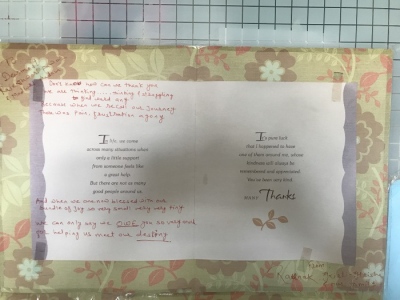 Don't know how can we thank you
We are thinking ... thinking & struggling
to find word out
because when we began our journey
there were pain, frustration agony
In life, we come
across many situations when
only a little support
from someone feels like
a great help.
But there are not so many
good people around us.
It's pure luck
that I happened to have
one of them around me, whose
kindness will always be
remembered and appreciated.
You've been very kind.
Many Thanks
And when we are now blessed with our
bundle of Joy very small very very tiny
we can only say we OWE you so very much
for helping us meet our destiny
From: